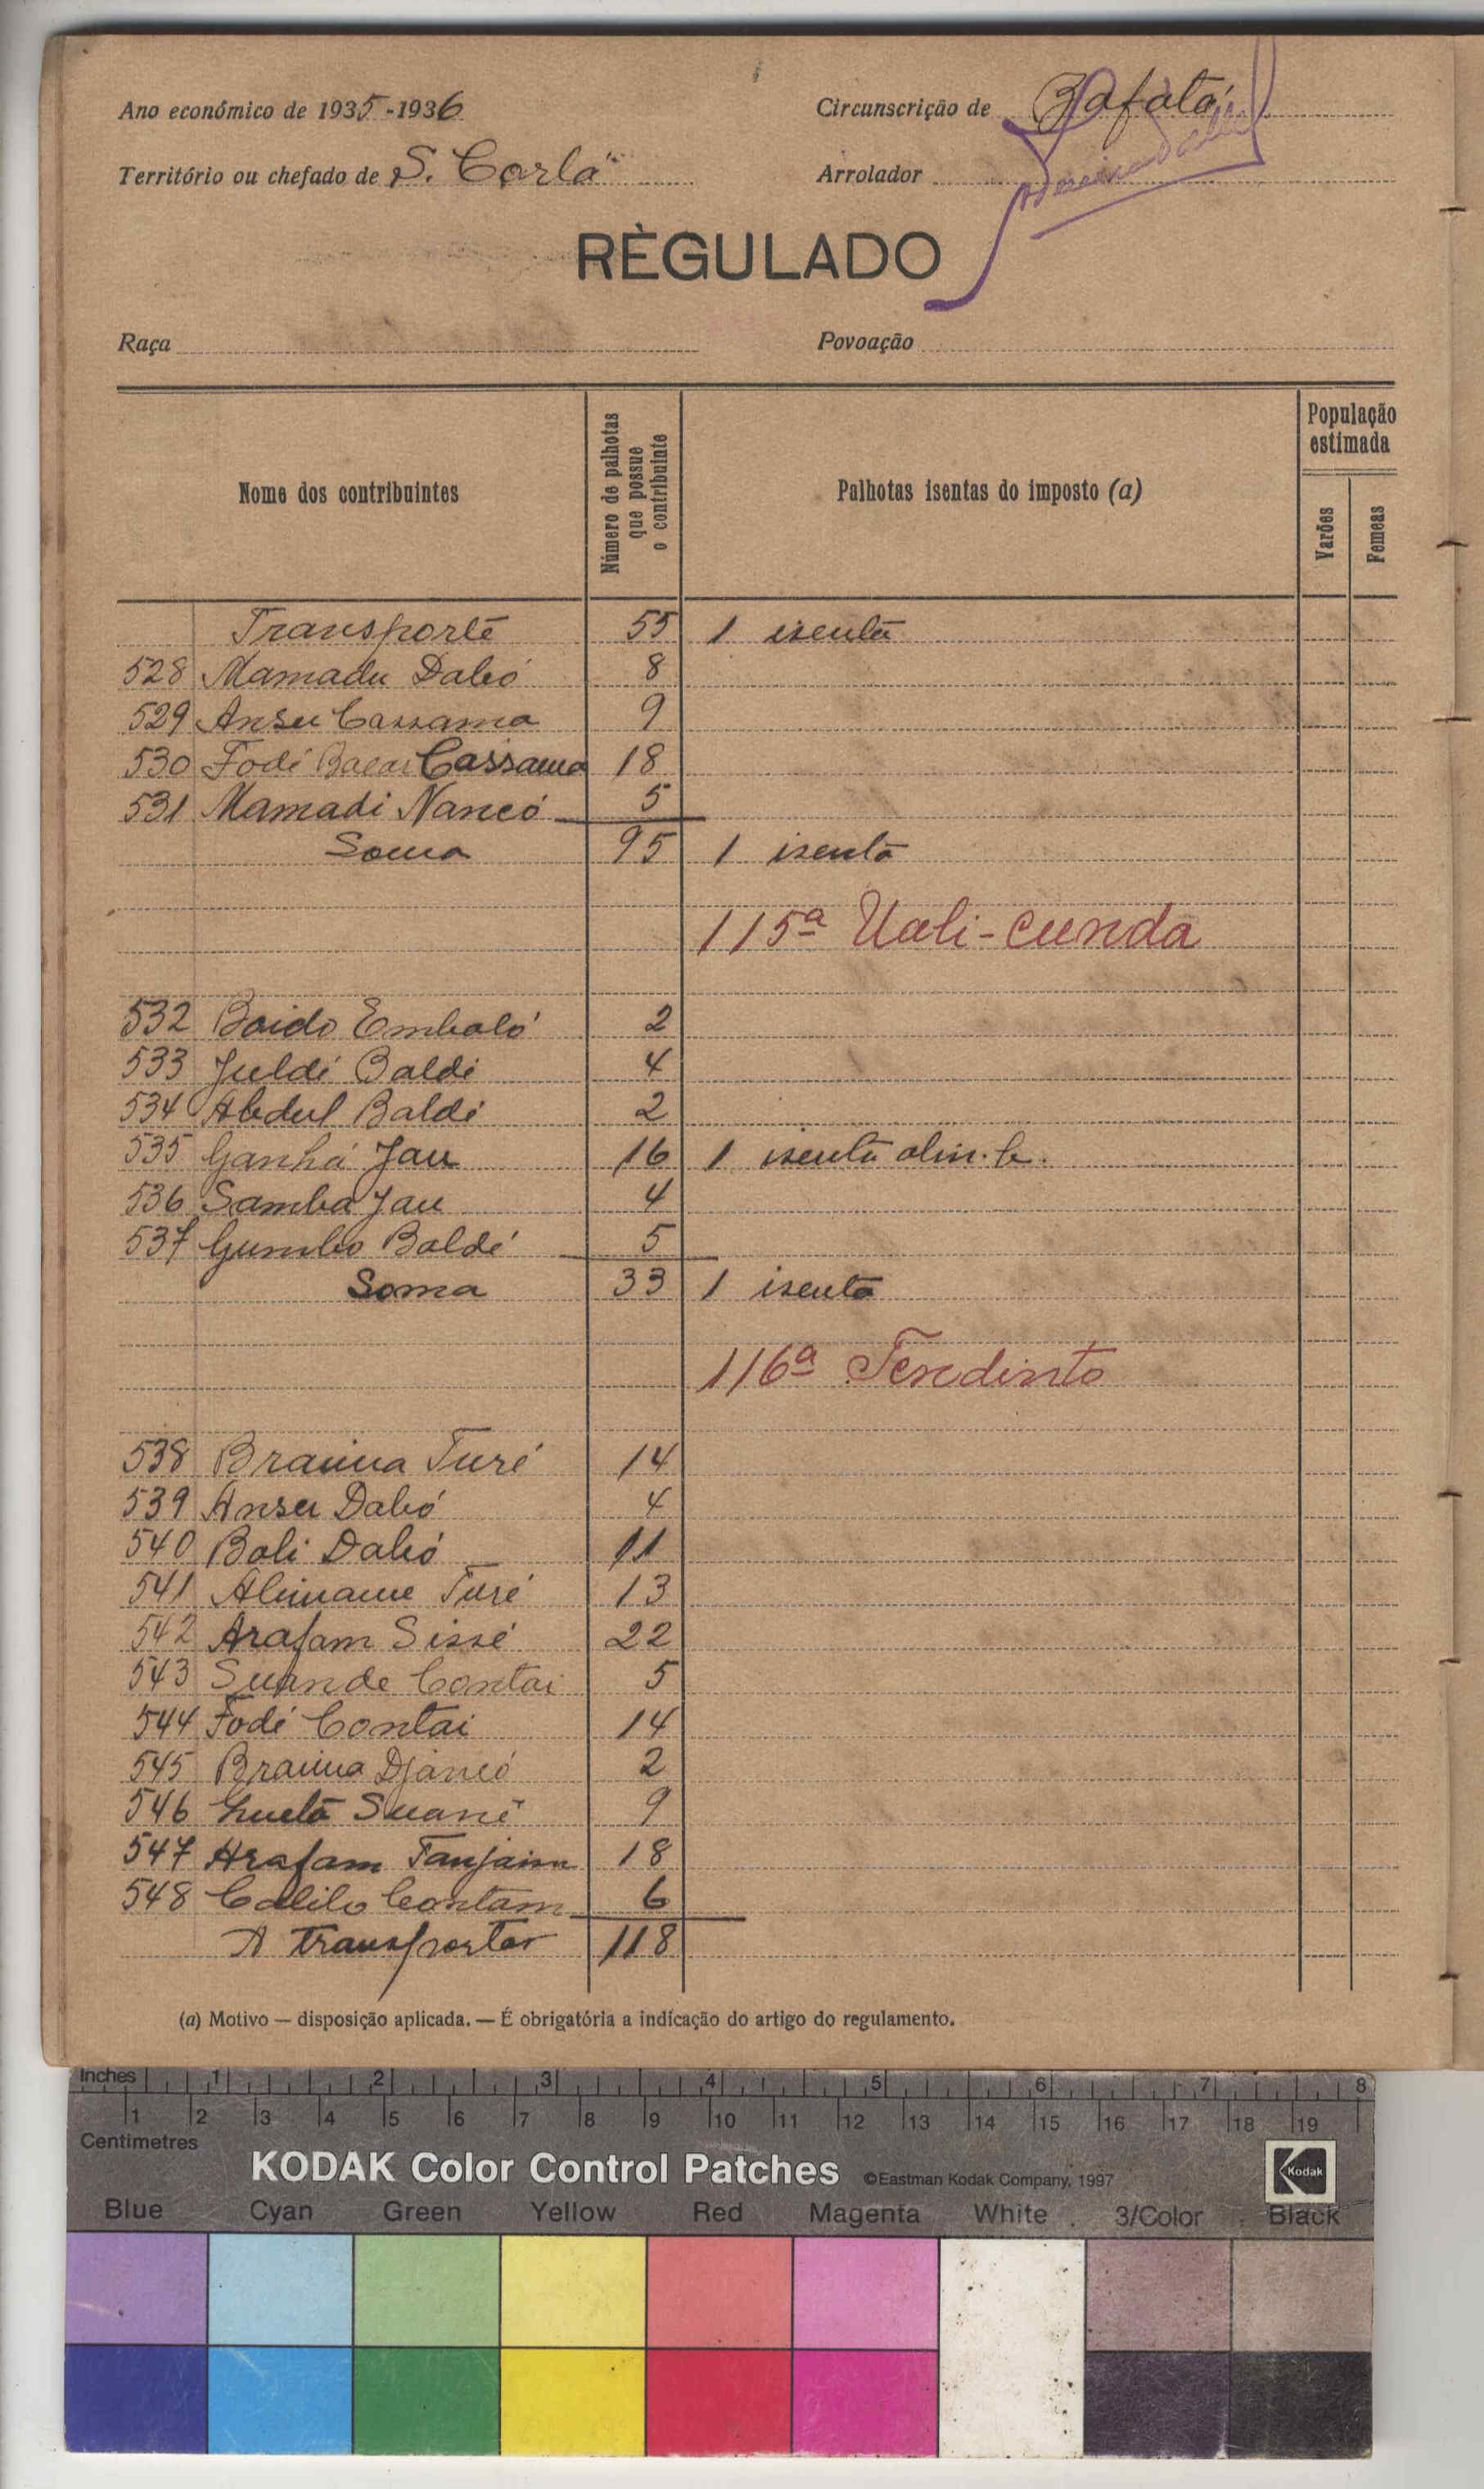 Ano económico de 1935-1936
Circunscrição de Bafatá
Território ou chefado de S. Corlá
Arrolador
RÈGULADO
Raça
Povoação
Nome dos contribuintes
Número de palhotas que possue o contribuinte
Palhotas isentas do imposto (a)
População estimada
Varões
Femeas
Transporte 55 1 isenta
528 Mamadu Dabó 8
529 Ansu Cassama 9
530 Fodé Bacar Cassama 18
531 Mamadi Nancó 5
Soma 95 1 isenta
115ª Uali-cunda
532 Boido Embaló 2
533 Juldé Baldé 4
534 Abdul Baldé 2
535 Ganhá Jau 16 1 isenta
536 Samba Jau 4
537 Gumbo Baldé 5
Soma 33 1 isenta
116ª Tendinto
538 Braima Turé 14
539 Ansu Dabó 4
540 Boli Dabó 11
541 Alimame Turé 13
542 Arafam Sissé 22
543 Suande Contai 5
544 Fodé Contai 14
545 Braima Djancó 2
546 Suané 9
547 Arafam Fanjaim 18
548 Calilo Contam 6
A transportar 118
(a) Motivo — disposição aplicada. — É obrigatória a indicação do artigo do regulamento.
Inches 1 2 3 4 5 6 7 8
1 2 3 4 5 6 7 8 9 10 11 12 13 14 15 16 17 18 19
Centimetres
KODAK Color Control Patches ©Eastman Kodak Company, 1997 Kodak
Blue Cyan Green Yellow Red Magenta White 3/Color Black